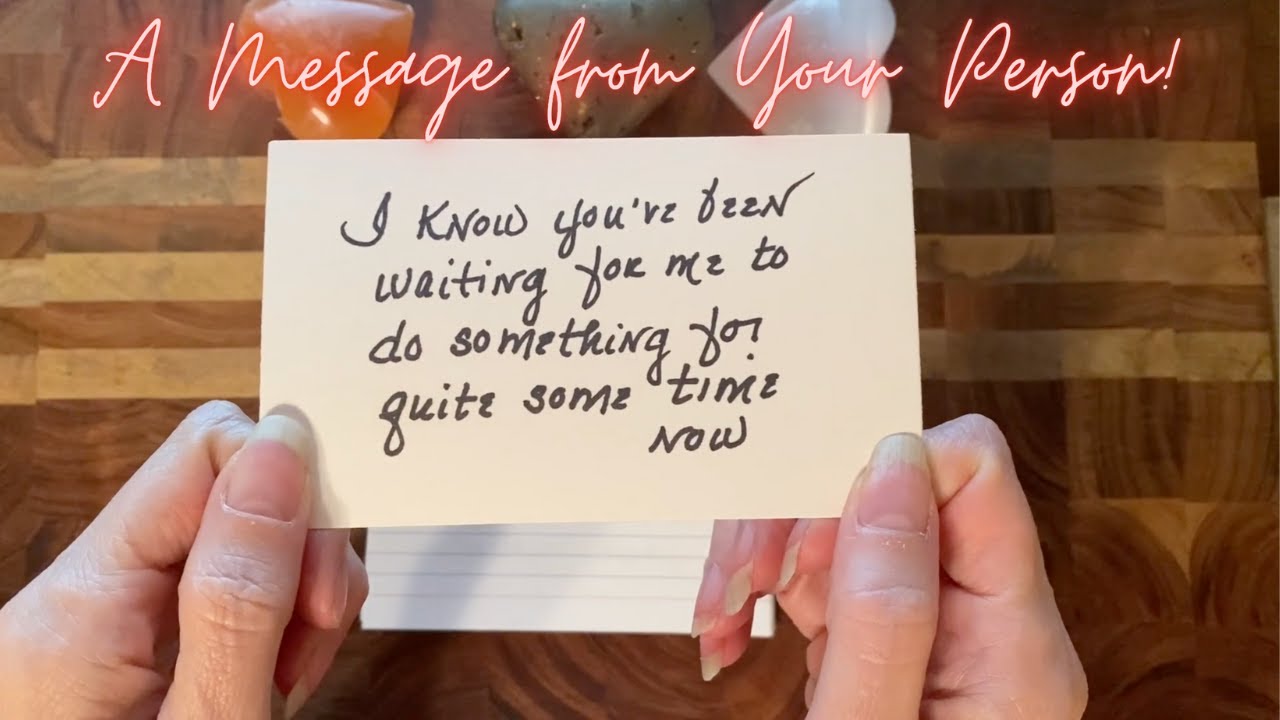 A Message from Your Person!
I KNOW you've been
waiting for me to
do something for
quite some time
NOW